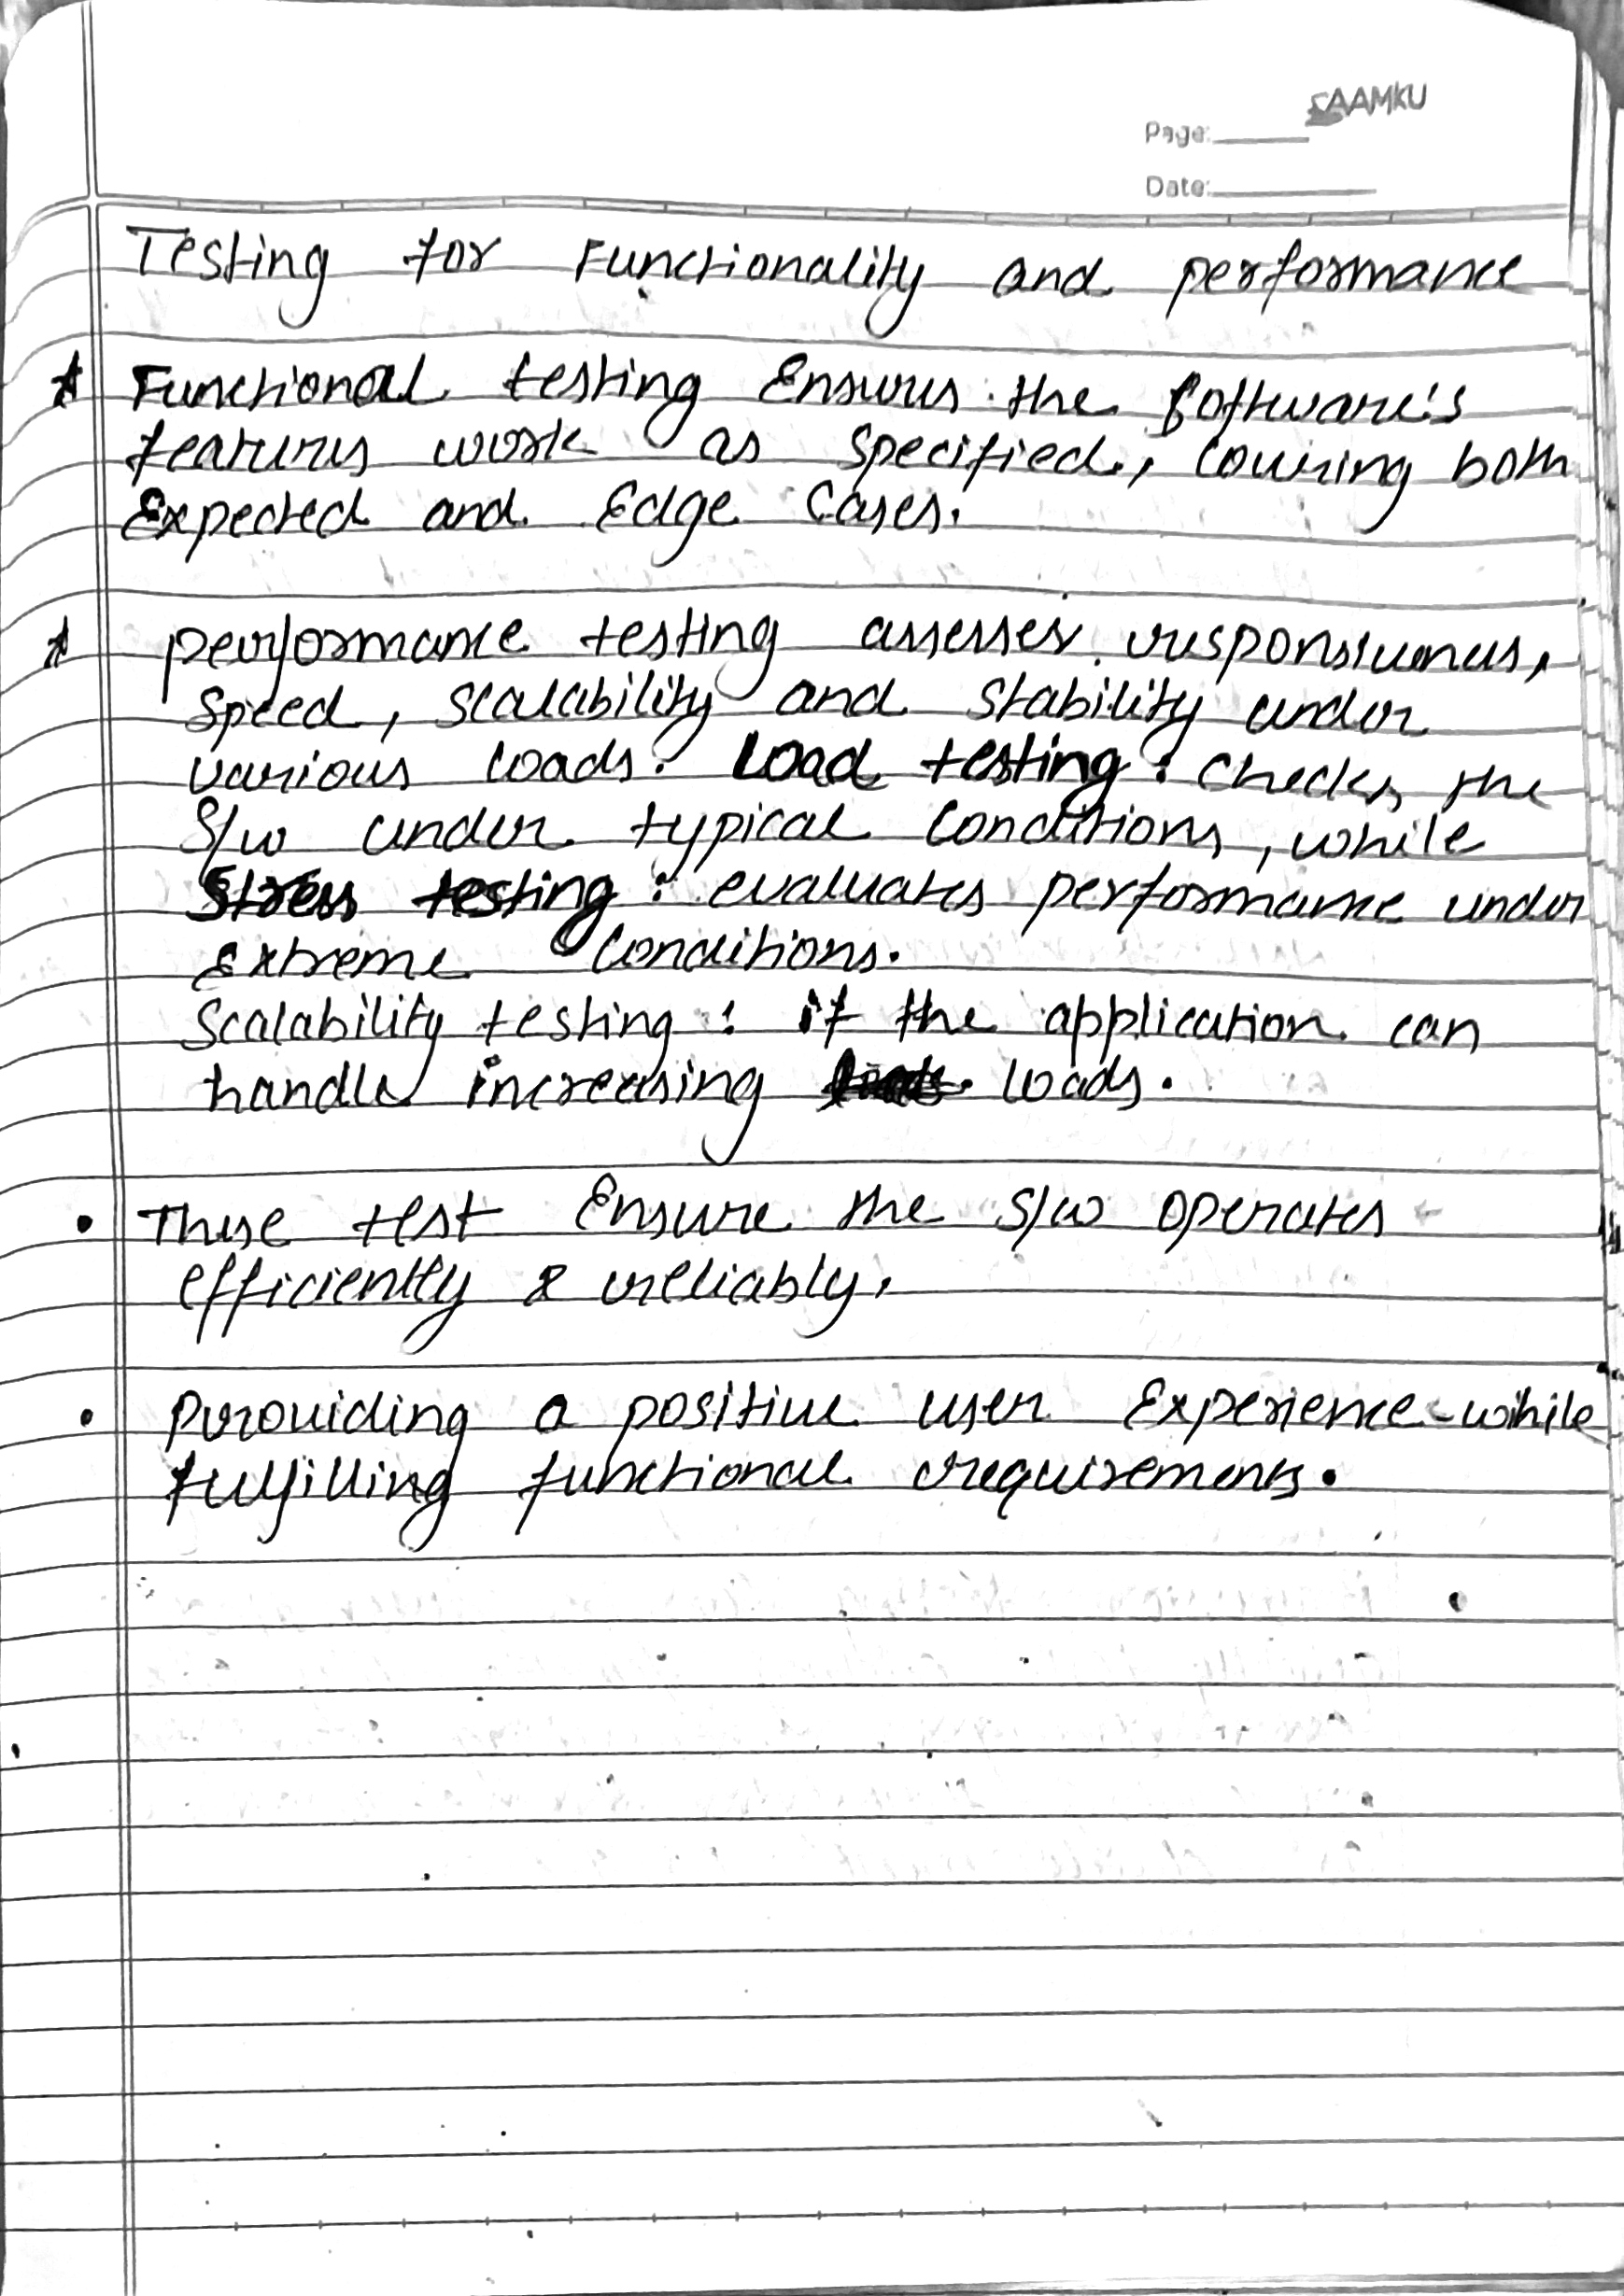 SAAMKU
Page:
Date:
Testing for Functionality and performance
* Functional testing Ensures the Software's
features work as specified, covering both
Expected and Edge Cases.
* performance testing assesses responsiveness,
speed, scalability and stability under
various loads. Load testing: checks the
S/w under typical conditions, while
Stress testing: evaluates performance under
Extreme Conditions.
Scalability testing: if the application can
handle increasing loads.
• These test Ensure the S/w operates
efficiently & reliably.
• Providing a positive user Experience while
fulfilling functional requirements.